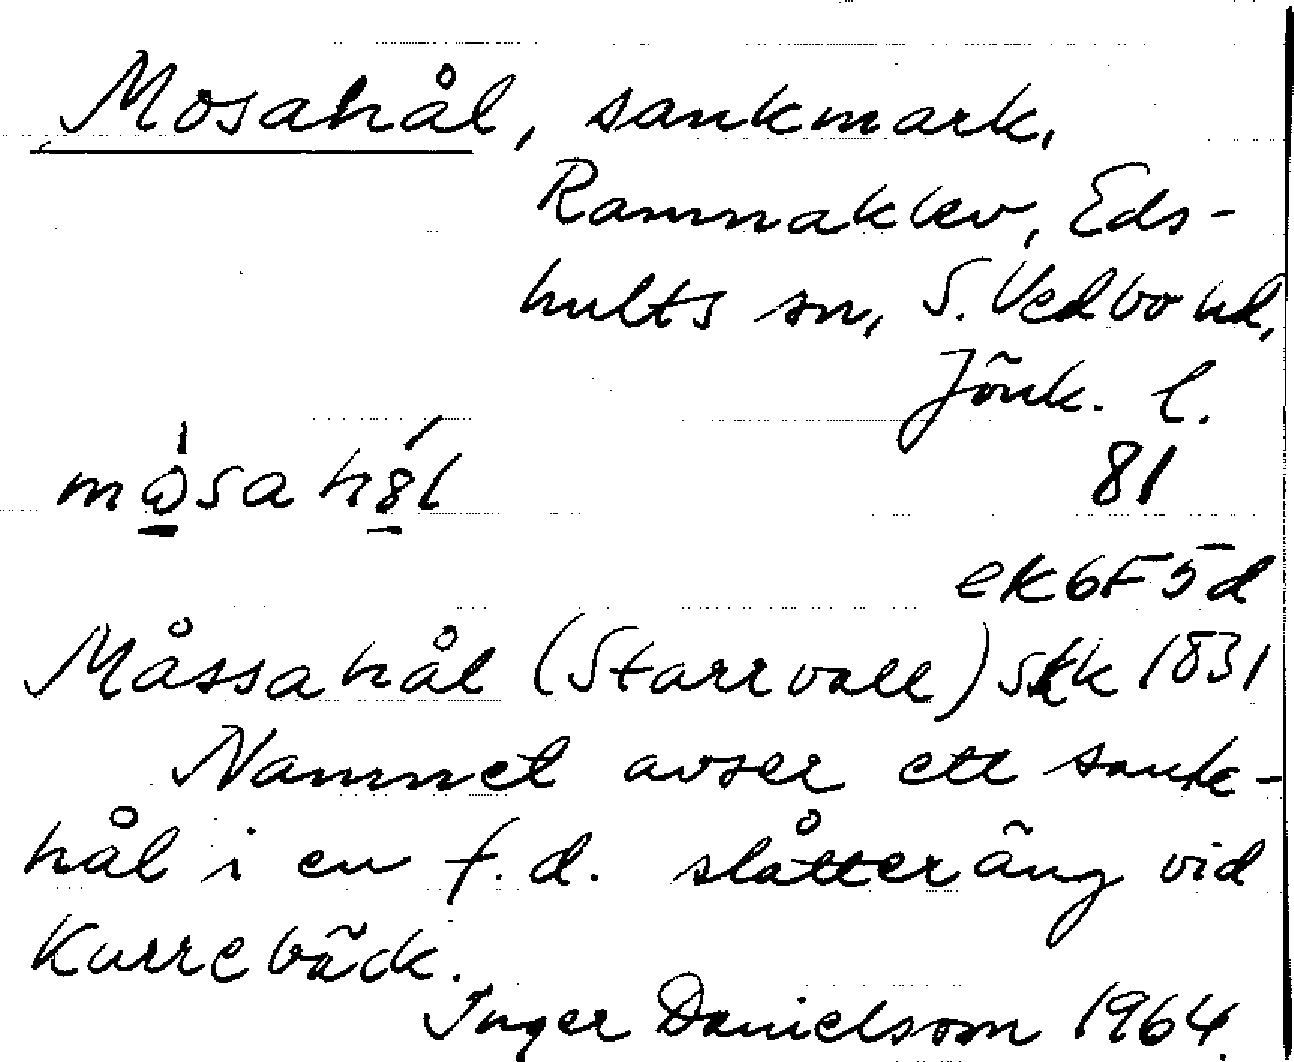 Mosahål, sankmark,
Ramnaklev, Eds-
hults sn, S. Vedbo hd,
Jönk. l.
81
ek 6F 5d
Måssahål (Starrvall) Stk 1831
Namnet avser ett sank-
hål i en f.d. slåtteräng vid
Kurrebäck.
Inger Danielsson 1964.